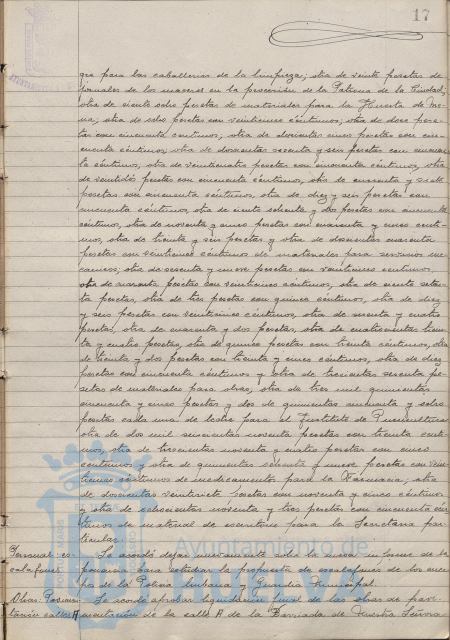 17
gra para las caballerias de la limpieza; otra de veinte pesetas de
jornales de los maceros en la procesión de la Patrona de la Ciudad;
otra de ciento ocho pesetas de materiales para la Huerta de
otra de ocho pesetas con veinticinco céntimos, otra de doce pese-
tas con cincuenta centimos; otra de doscientas cinco pesetas con cin-
cuenta céntimos, otra de doscientas sesenta y seis pesetas con cincuen-
ta céntimos, otra de veinticuatro pesetas con cincuenta céntimos, otra
de ventidós pesetas con cincuenta céntimos, otra de cuarenta y siete
pesetas con cincuenta céntimos, otra de diez y seis pesetas con
cincuenta céntimos, otra de ciento ochenta y dos pesetas con cincuenta
céntimos, otra de noventa y cinco pesetas con cuarenta y cinco centi-
mos, otra de treinta y seis pesetas y otra de doscientas cuarenta
pesetas con veinticinco céntimos de materiales para servicios me-
canicos; otra de sesenta y nueve pesetas con veinticinco centimos,
otra de cuarenta pesetas con veinticinco céntimos, otra de ciento seten-
ta pesetas, otra de tres pesetas con quince céntimos, otra de diez
y seis pesetas con veinticinco céntimos, otra de y cuatro
pesetas, otra de cuarenta y dos pesetas, otra de cuatrocientas trein-
ta y cuatro pesetas, otra de quince pesetas con treinta céntimos, otra
de treinta y dos pesetas con treinta y cinco céntimos, otra de diez
pesetas con cincuenta céntimos y otra de trescientas sesenta pe-
setas de materiales para obras, otra de tres mil quinientas
cincuenta y cinco pesetas y dos de quinientas cincuenta y ocho
pesetas cada una de leche para el Instituto de Puericultura
otra de dos mil noventa pesetas con treinta centi-
mos, otra de trescientas noventa y cuatro pesetas con cinco
centimos y otra de quinientas sesenta y nueve pesetas con vein-
ticinco céntimos de medicamentos para la Farmacia; otra
de doscientas veintisiete pesetas con noventa y cinco céntimos
y otra de ochocientas noventa y tres pesetas con cincuenta cén-
timos de material de escritorio para la Secretaría par-
ticular.
Personal: es- Se acordó dejar nuevamente sobre la mesa informe de la
calafones ponencia para estudiar la propuesta de escalafones de los cuer-
pos de la Policia Urbana y Guardia Municipal.
Obras: Pavimen- Se acordó aprobar liquidación final de las obras de pavi-
tación calle A mentación de la calle A de la Barriada de Nuestra Señora
Ayuntamiento de